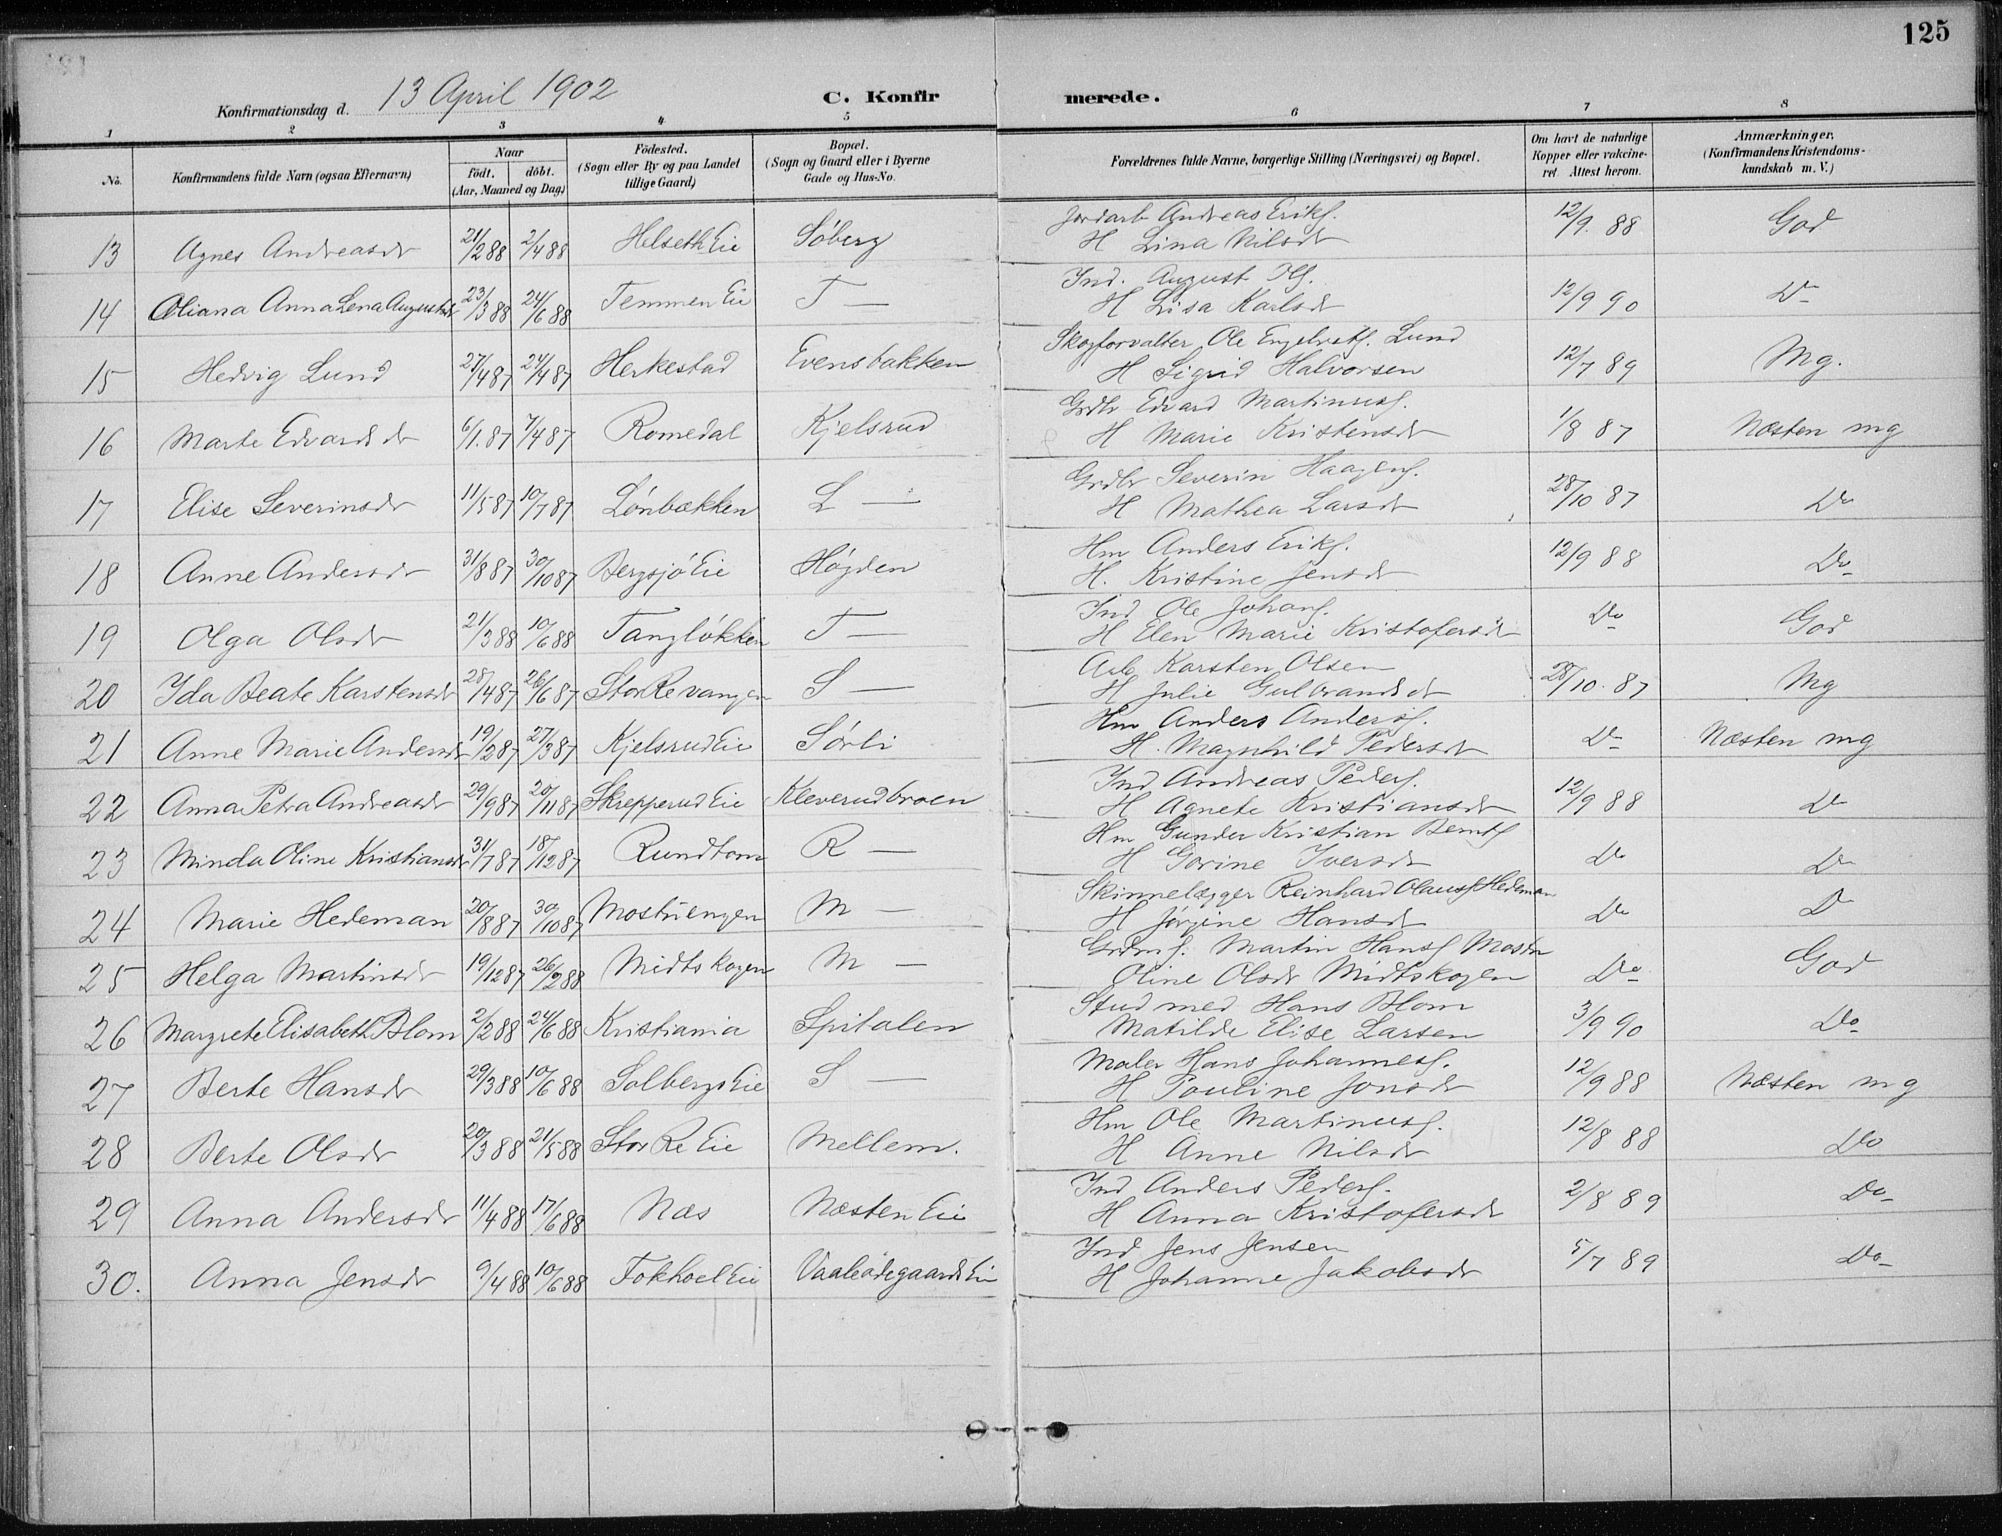 125
Konfirmationsdag d. 13 April 1902 C. Konfirmerede.
1 2 3 4 5 6 7 8
No. Konfirmandens fulde Navn (ogsaa Efternavn) Naar födt. döbt. (Aar, Maaned og Dag) Födested. (Sogn eller By og paa Landet tillige Gaard) Bopæl. (Sogn og Gaard eller i Byerne Gade og Hus-No. Forældrenes fulde Navne, borgerlige Stilling (Næringsvei) og Bopæl. Om havt de naturlige Kopper eller vakcineret Attest herom. Anmærkninger. (Konfirmandens Kristendomskundskab m. V.)
Jordarb Andreas Eriks.
13 Agnes Andreasdr 21/2 88 2/4 88 Helseth Eie Söberg H Lina Nilsdr 12/9. 88 God
Ind. August Ols.
14 Oliana Anna Lena Augustsdr 23/3 88 24/6 88 Temmen Eie T — H Lisa Karlsdr 12/9 90 Do
Skogforvalter Ole Engebrets. Lund
15 Hedvig Lund 27/4 87 24/4 87 Herkestad Evensbakken H Sigrid Halvorsen 12/7 89 Mg.
Grdbr Edvard Martinuss.
16 Marte Edvardsdr 6/1. 87 7/4 87 Romedal Kjelsrud H Marie Kristensdr 1/8 87 Næsten mg
Grdbr Severin Haagens.
17 Elise Severinsdr 11/5 87 10/7 87 Lönbækken L — H Mathea Larsdr 28/10 87 Do
Hm Anders Eriks.
18 Anne Andersdr 31/8 87 30/10 87 Bergsjö Eie Högden H. Kristine Jensdr 12/9 88 Do
Ind Ole Johans.
19 Olga Olsdr 21/3 88 10/6 88 Tanglökken T — H Elen Marie Kristofersdr Do God
Arb Karsten Olsen
20 Ida Beate Karstensdr 28/4 87 26/6 87 Stor Re vangen S — H Julie Gulbrandsdr 28/10. 87 Mg
Hm Anders Anders.
21 Anne Marie Andersdr 19/2 87 27/3 87 Kjelsrud Eie Sörli H. Magnhild Pedersdr Do Næsten mg
Ind Andreas Peders.
22 Anna Petra Andreasdr 29/9 87 20/11 87 Skrepperud Eie Kleverudbroen H Agnete Kristiansdr 12/9 88 Do
Hm Gunder Kristian Bernts
23 Minda Oline Kristiansdr 31/7 87 18/12 87 Rundtom R — H Gorine Iversdr Do Do
Skinnelægger Reinhard Olauss Hedeman
24 Marie Hedeman 20/8 87 30/10 87 Mostuengen M — H Jörgine Hansdr Do D
Grdms. Martin Hanss
25 Helga Martinsdr 19/12 87 26/2 88 Midtskogen M — Oline Olsdr Midtskogen Do God
Stud med Hans Blom
26 Margrete Elisabeth Blom 2/2 88 24/6 88 Kristiania Spitalen Matilde Elise Larsen 3/9 90 Do
Maler Hans Johanness.
27 Berte Hansdr 29/3 88 10/6 88 Solbergs Eie S — H Pouline Jonsdr 12/9 88 Næsten mg
Hm Ole Martinuss.
28 Berte Olsdr 20/3 88 21/5 88 Stor Re Eie Mellem. H Anne Nilsdr 12/8 88 Do
Ind Anders Peders.
29 Anna Andersdr 11/4 88 17/6 88 Næs Næsten Eie H Anna Kristofersdr 2/8 89 Do
Ind Jens Jensen
30. Anna Jensdr 9/4 88 10/6 88 Fokhoel Eie Vaaleödegaards Eie H Johanne Jakobsdr 5/7 89 Do